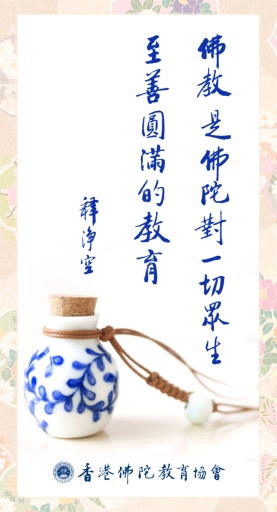 佛教是佛陀對一切眾生
至善圓滿的教育
釋淨空
香港佛陀教育協會